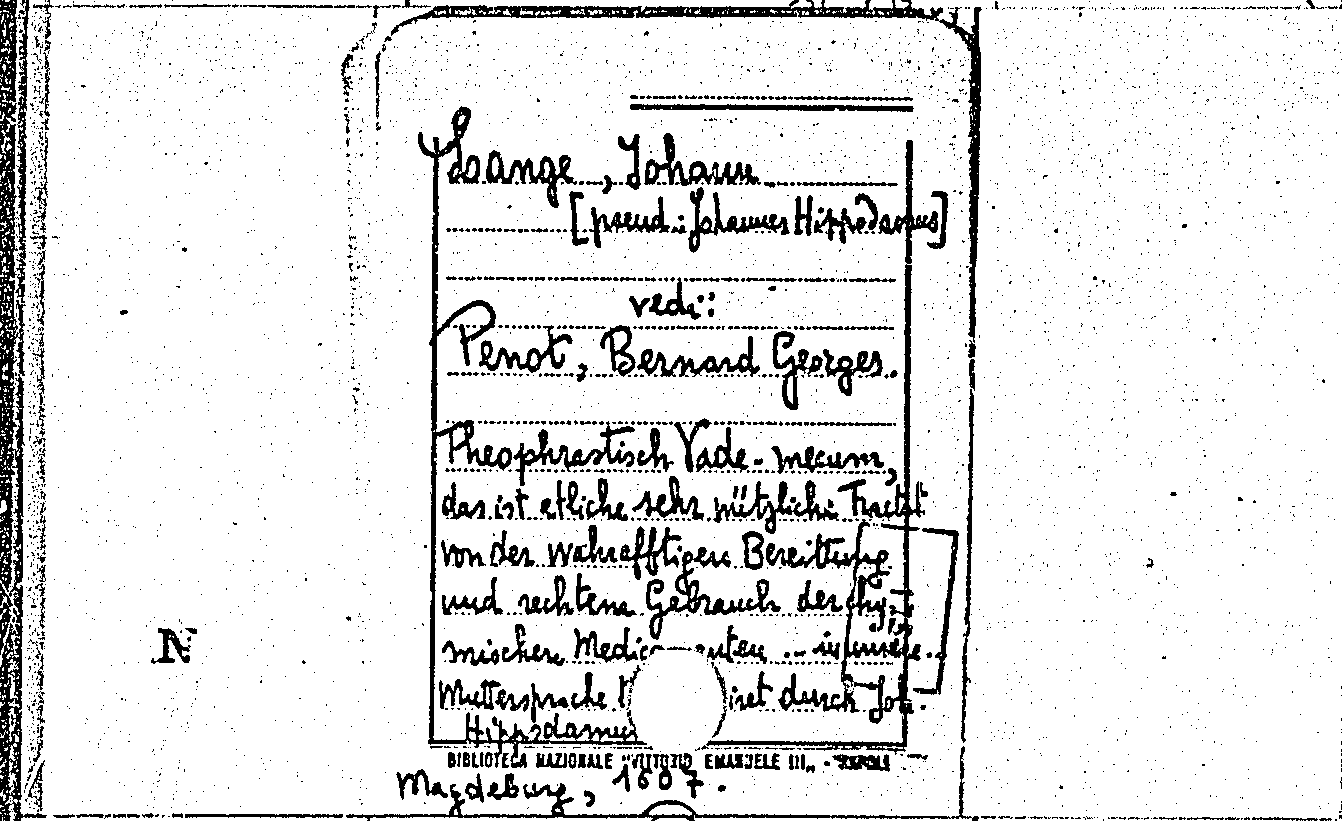 Lange, Johann
[pseud.: Johannes Hippodamus]
vedi:
Penot, Bernard Georges.
Theophrastisch Vade-mecum,
das ist etliche sehr nützliche Tractat
von der wahrafftigen Bereittung
und rechtem Gebrauch der chy-
mischen Medic enten ... in unsere
Muttersprache iret durch Joh.
Hippodamus
BIBLIOTECA NAZIONALE "VITTORIO EMANUELE III" - NAPOLI
Magdeburg, 1607.
N